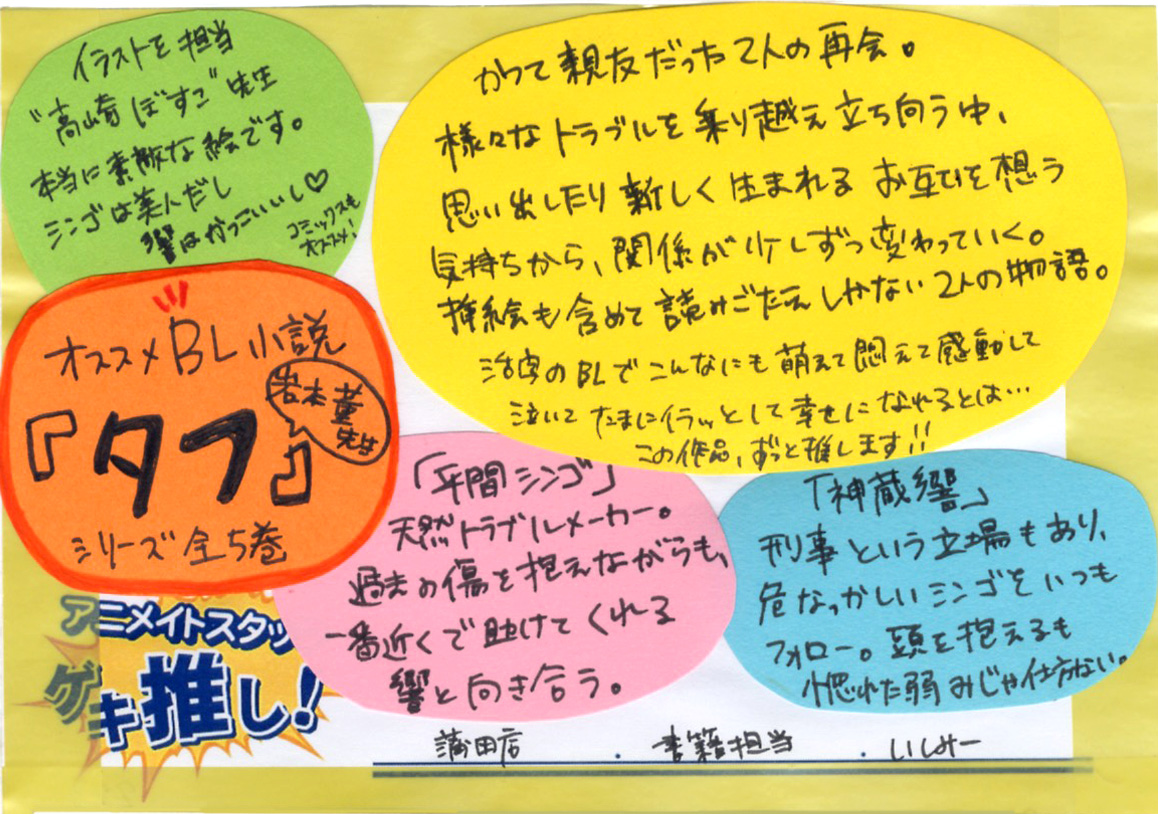 イラストを担当
"高崎ぼすこ"先生
本当に素敵な絵です。
シンゴは美人だし
響はかっこいいし♡
コミックスも
オススメ!
かつて親友だった2人の再会。
様々なトラブルを乗り越え立ち向う中、
思い出したり新しく生まれるお互いを想う
気持ちから、関係が少しずつ変わっていく。
挿絵も含めて読みごたえしかない2人の物語。
活字のBLでこんなにも萌えて悶えて感動して
泣いてたまにイラッとして幸せになれるとは…
この作品、ずっと推します!!
オススメBL小説
『タフ』
岩本薫
先生
シリーズ全5巻
「平間シンゴ」
天然トラブルメーカー。
過去の傷を抱えながらも、
一番近くで助けてくれる
響と向き合う。
「神蔵響」
刑事という立場もあり、
危なっかしいシンゴをいつも
フォロー。頭を抱えるも
惚れた弱みじゃ仕方ない。
アニメイトスタッ
ゲキ推し!
蒲田店・書籍担当・いしみー